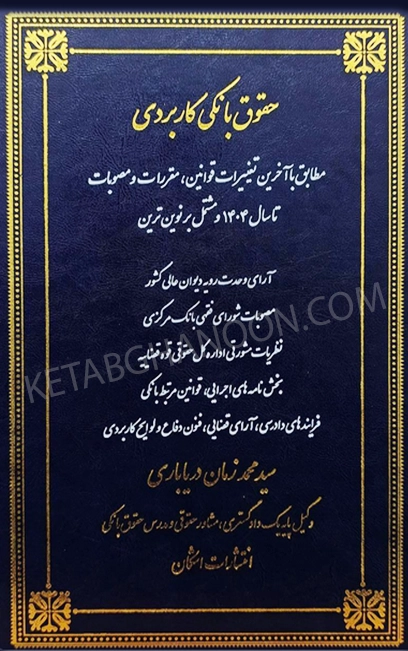 حقوق بانکی کاربردی
مطابق با آخرین تغییرات قوانین، مقررات و مصوبات
تا سال ۱۴۰۴ و مشتمل بر نوین ترین
آرای وحدت رویه دیوان عالی کشور
مصوبات شورای فقهی بانک مرکزی
نظریات مشورتی اداره کل حقوقی قوه قضاییه
بخش نامه های اجرایی، قوانین مرتبط بانکی
فرایندهای دادرسی، آرای قضایی، فنون دفاع و لوایح کاربردی
سید محمد زمان دریاباری
وکیل پایه یک دادگستری، مشاور حقوقی و مدرس حقوق بانکی
انتشارات اشکان
KETABGHANOON.COM